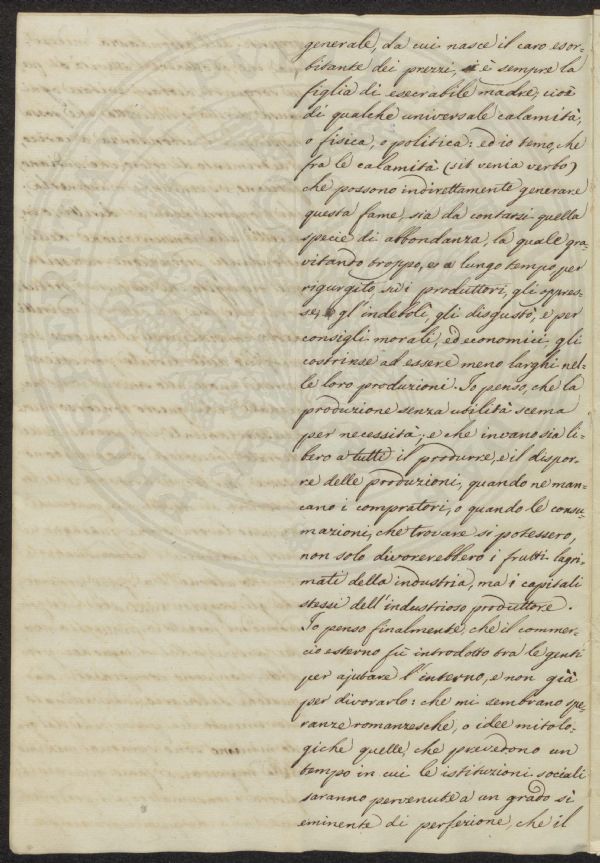 generale, da cui nasce il caro esor-
bitante dei prezzi, è sempre la
figlia di esecrabile madre, cioè
di qualche universale calamità,
o fisica, o politica: ed io temo, che
fra le calamità (sit venia verbo)
che possono indirettamente generare
questa fame, sia da contarsi quella
specie di abbondanza, la quale gra-
vitando troppo, e a lungo tempo per
rigurgito, su i produttori, gli oppres-
se, gl'indebolì, gli disgustò, e per
consigli morali, ed economici gli
costrinse ad essere meno larghi nel-
le loro produzioni. Io penso, che la
produzione senza utilità scema
per necessità; e che invano sia li-
bero a tutti il produrre, e il dispor-
re delle produzioni, quando ne man-
cano i compratori, o quando le consu-
mazioni, che trovare si potessero,
non solo divorerebbero i frutti lagri-
mati della industria, ma i capitali
stessi dell'industrioso produttore.
Io penso finalmente, che il commer-
cio esterno fù introdotto tra le genti
per ajutare l'interno, e non già
per divorarlo: che mi sembrano spe-
ranze romanzesche, o idee mitolo-
giche quelle, che prevedono un
tempo in cui le istituzioni sociali
saranno pervenute a un grado sì
eminente di perfezione, che il